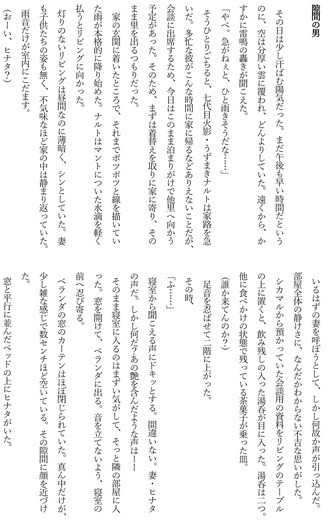 隙間の男
その日は少し汗ばむ陽気だった。まだ午後も早い時間だという
のに、空は分厚い雲に覆われ、どんよりしていた。遠くから、か
すかに雷鳴の轟きが聞こえた。
「やべ。急がねぇと、ひと雨きそうだな……」
そうひとりごちると、七代目火影・うずまきナルトは家路を急
いだ。多忙な彼がこんな時間に家に帰るなどありえないことだが、
会談に出席するため、今日はこのまま泊まりがけで他里へ向かう
予定があった。そのため、まずは着替えを取りに家に寄り、その
まま里を出るつもりだった。
家の玄関に着いたところで、それまでポツポツと線を描いてい
た雨が本格的に降り始めた。ナルトはマントについた水滴を軽く
払うとリビングに向かった。
灯りのないリビングは昼間なのに薄暗く、シンとしていた。妻
も子供たちの姿も無く、不気味なほど家の中は静まり返っていた。
雨音だけが室内にこだまする。
(おーい、ヒナタ?)
いるはずの妻を呼ぼうとして、しかし何故か声が引っ込んだ。
部屋全体の静けさに、なんだかわからない不吉な思いがした。
シカマルから預かっていた会談用の資料をリビングのテーブル
の上に置くと、飲み残しの入った湯呑が目に入った。湯呑は二つ。
他に食べかけの状態で残っている茶菓子が乗った皿。
(誰か来てんのか?)
足音を忍ばせて二階に上がった。
その時、
「ふ……」
寝室から聞こえる声にドキッとする。間違いない。妻・ヒナタ
の声だ。しかし何だ?あの艶を含んだような声は――
そのまま寝室に入るのはまずい気がして、そっと隣の部屋に入
った。窓を開けて、ベランダに出る。音を立てないよう、寝室の
前へ忍び寄る。
ベランダの窓のカーテンはほぼ閉じられていた。真ん中だけが、
少し雑な感じで数センチほど空いている。その隙間に顔を近づけ
た。
窓と平行に並んだベッドの上にヒナタがいた。